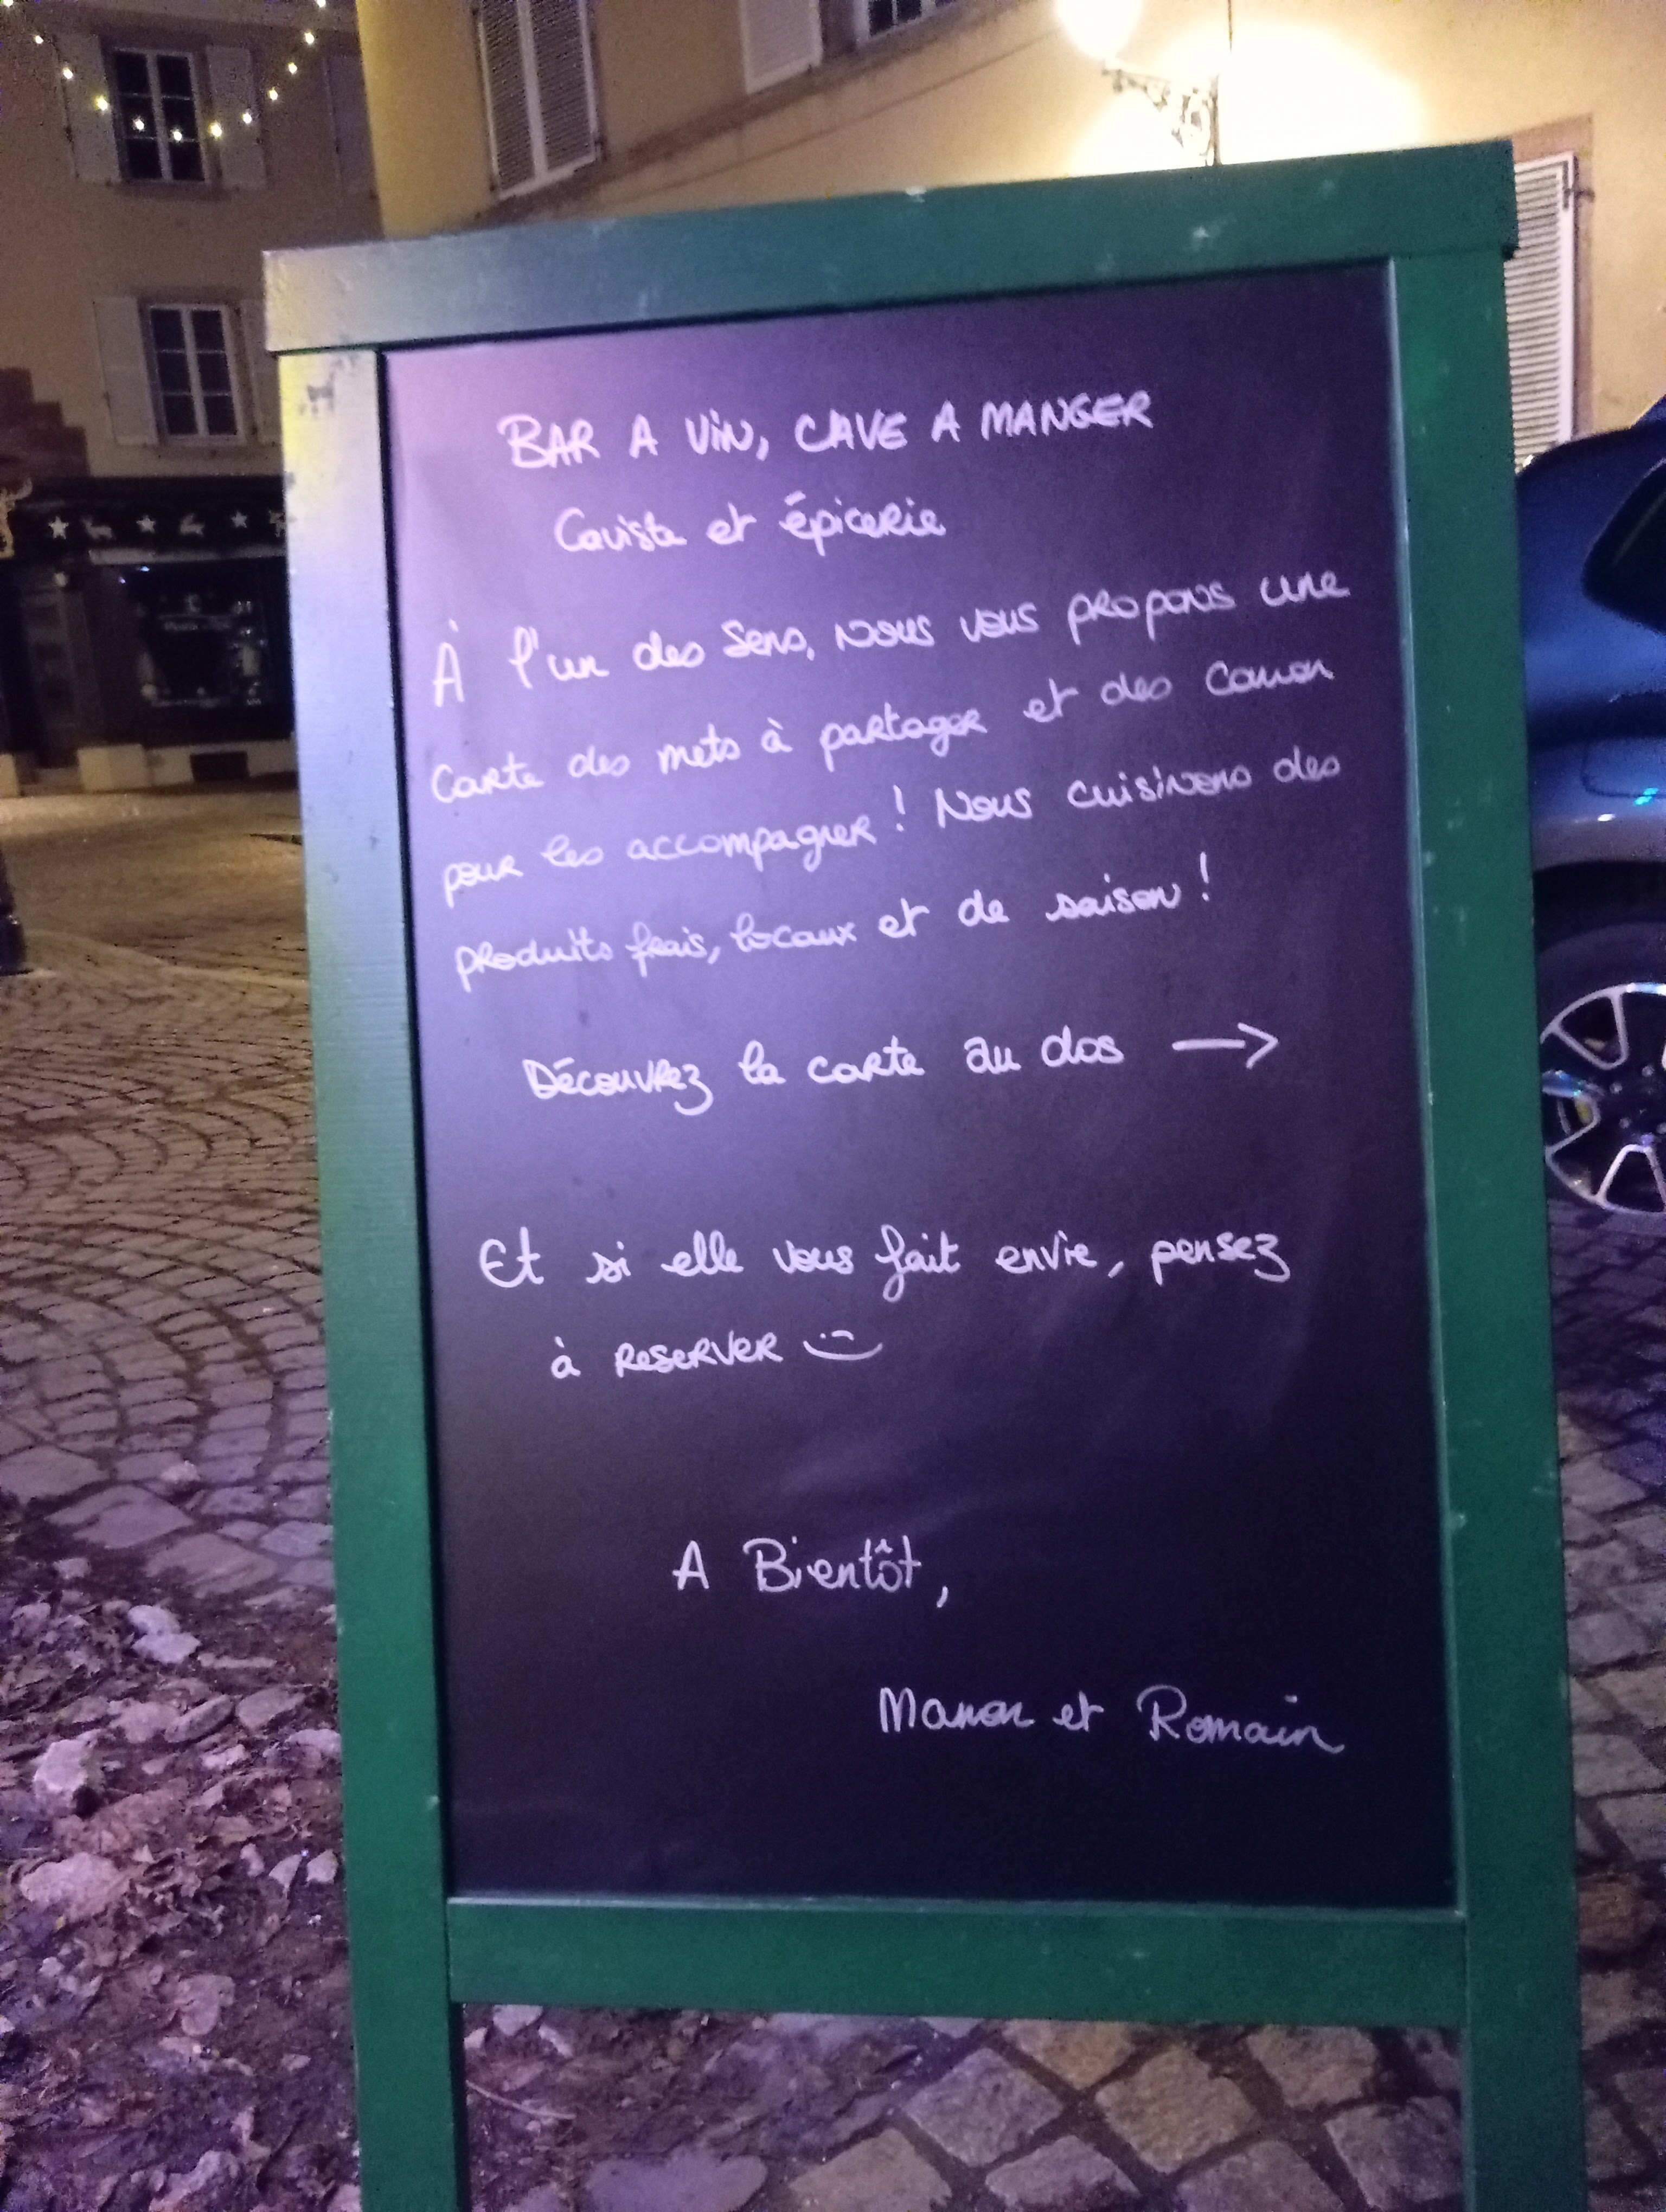 BAR A ViN, CAVE A MANGER
Caviste et épicerie
À l'un des Sens, Nous vous proposons une
Carte des mets à partager et des Canon
pour les accompagner ! Nous cuisinons des
produits frais, locaux et de saison !
Découvrez la carte au dos →
Et si elle vous fait envie, pensez
à reserver :)
A Bientôt,
Manon et Romain